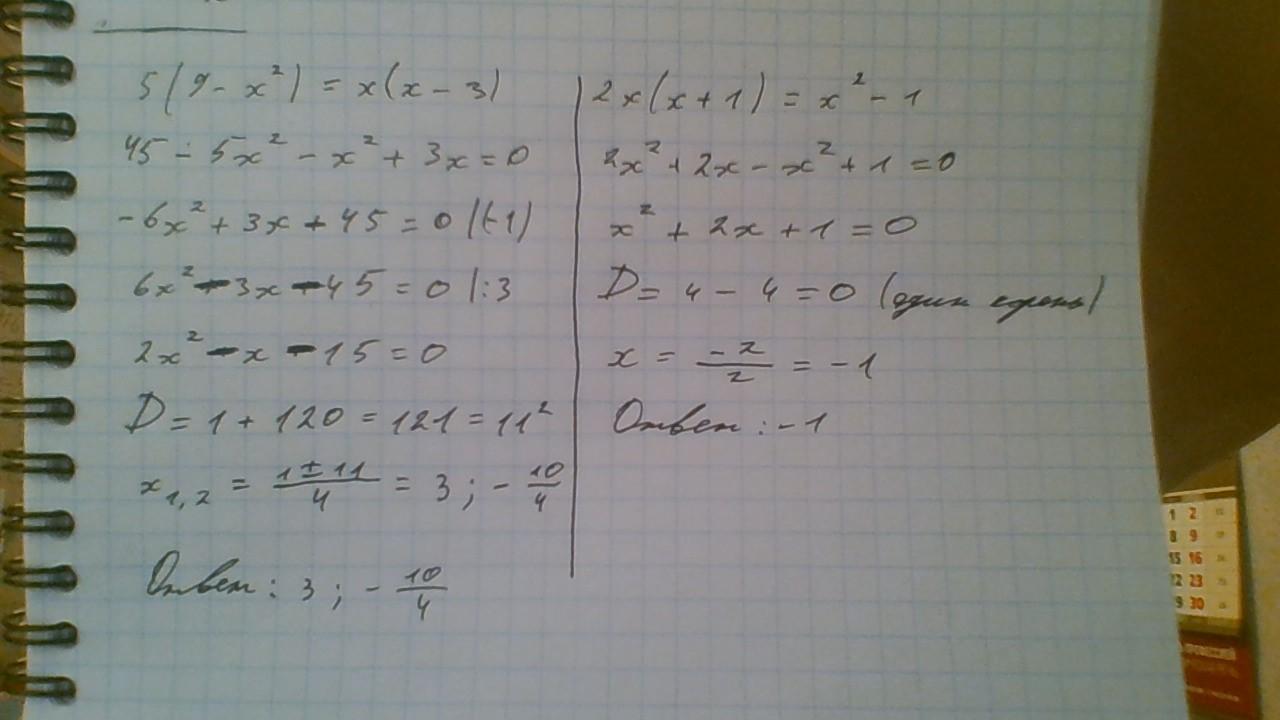 5(9 - x²) = x(x - 3)
45 - 5x² - x² + 3x = 0
-6x² + 3x + 45 = 0 |(-1)
6x² - 3x - 45 = 0 |:3
2x² - x - 15 = 0
D = 1 + 120 = 121 = 11²
x₁,₂ = (1 ± 11)/4 = 3 ; - 10/4
Ответ: 3 ; - 10/4
2x(x + 1) = x² - 1
2x² + 2x - x² + 1 = 0
x² + 2x + 1 = 0
D = 4 - 4 = 0 (один корень)
x = -2/2 = -1
Ответ: -1
1 2
8 9
15 16
22 23
29 30